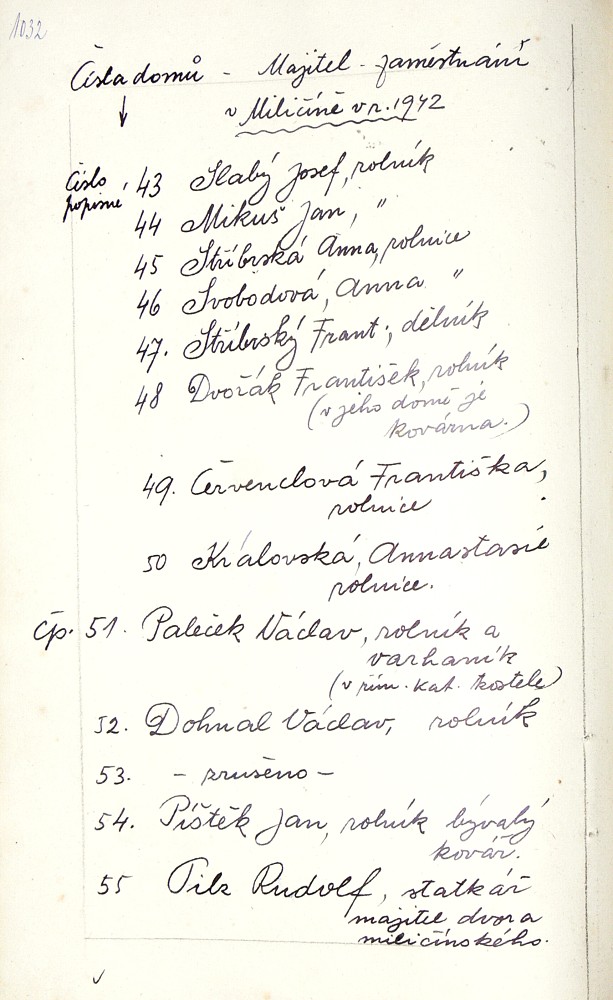 1032
Čísla domů - Majitel - zaměstnání
v Miličíně v r. 1942
Číslo popisné 43 Slabý Josef, rolník
44 Mikuš Jan, "
45 Stříbrská Anna, rolnice
46 Svobodová, Anna "
47. Stříbrský Frant., dělník
48 Dvořák František, rolník
(v jeho domě je
kovárna.)
49. Červenclová Františka,
rolnice
50 Královská, Annastasie
rolnice.
čp. 51. Paleček Václav, rolník a
varhaník
(v řím. kat. kostele)
52. Dohnal Václav, rolník
53. - zrušeno -
54. Píštěk Jan, rolník bývalý
kovář.
55 Pilz Rudolf, statkář
majitel dvora
miličínského.